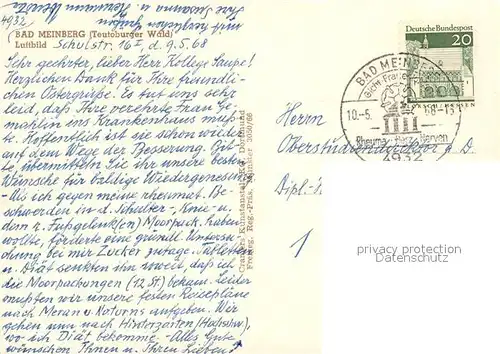 Ihre Susanna u. Hermann
mit herzlichen Grüßen
4932
BAD MEINBERG (Teutoburger Wald)
Luftbild Schulstr. 16 I, d. 9.5.68
Sehr geehrter, lieber Herr Kollege Laupe!
Herzlichen Dank für Ihre freundli-
chen Ostergrüße. Es tut uns sehr
leid, daß Ihre verehrte Frau Ge-
mahlin ins Krankenhaus muß-
te. Hoffentlich ist sie schon wieder
auf dem Wege der Besserung. Bit-
te, übermitteln Sie ihr unsere besten
Wünsche für baldige Wiedergenesung
- Als ich gegen meine rheumat. Be-
schwerden in d. Schulter-, Knie- u.
dem r. Fußgelenk(en) Moorpack. haben
wollte, förderte eine gründl. Untersu-
chung bei mir Zucker zutage. Tabletten
u. Diät senkten ihn soweit, daß ich
die Moorpackungen (12 St) bekam. Leider
mußten wir unsere festen Reisepläne
nach Meran u. Naturns aufgeben. Wir
gehen nun nach Hinterzarten (Hochschw),
wo ich Diät bekomme. - Alles Gute
wünschen Ihnen u. Ihren Lieben
Cramers Kunstanstalt KG, Dortmund
Freigeg. Reg.-Präs. Münster
Deutsche Bundespost
20
LORSCH/HESSEN
BAD MEINBERG
10.-5. 68-15
Rheuma-Herz-Nerven
4932
Herrn
Oberstudiendirektor a D.
Dipl.-
privacy protection
Datenschutz